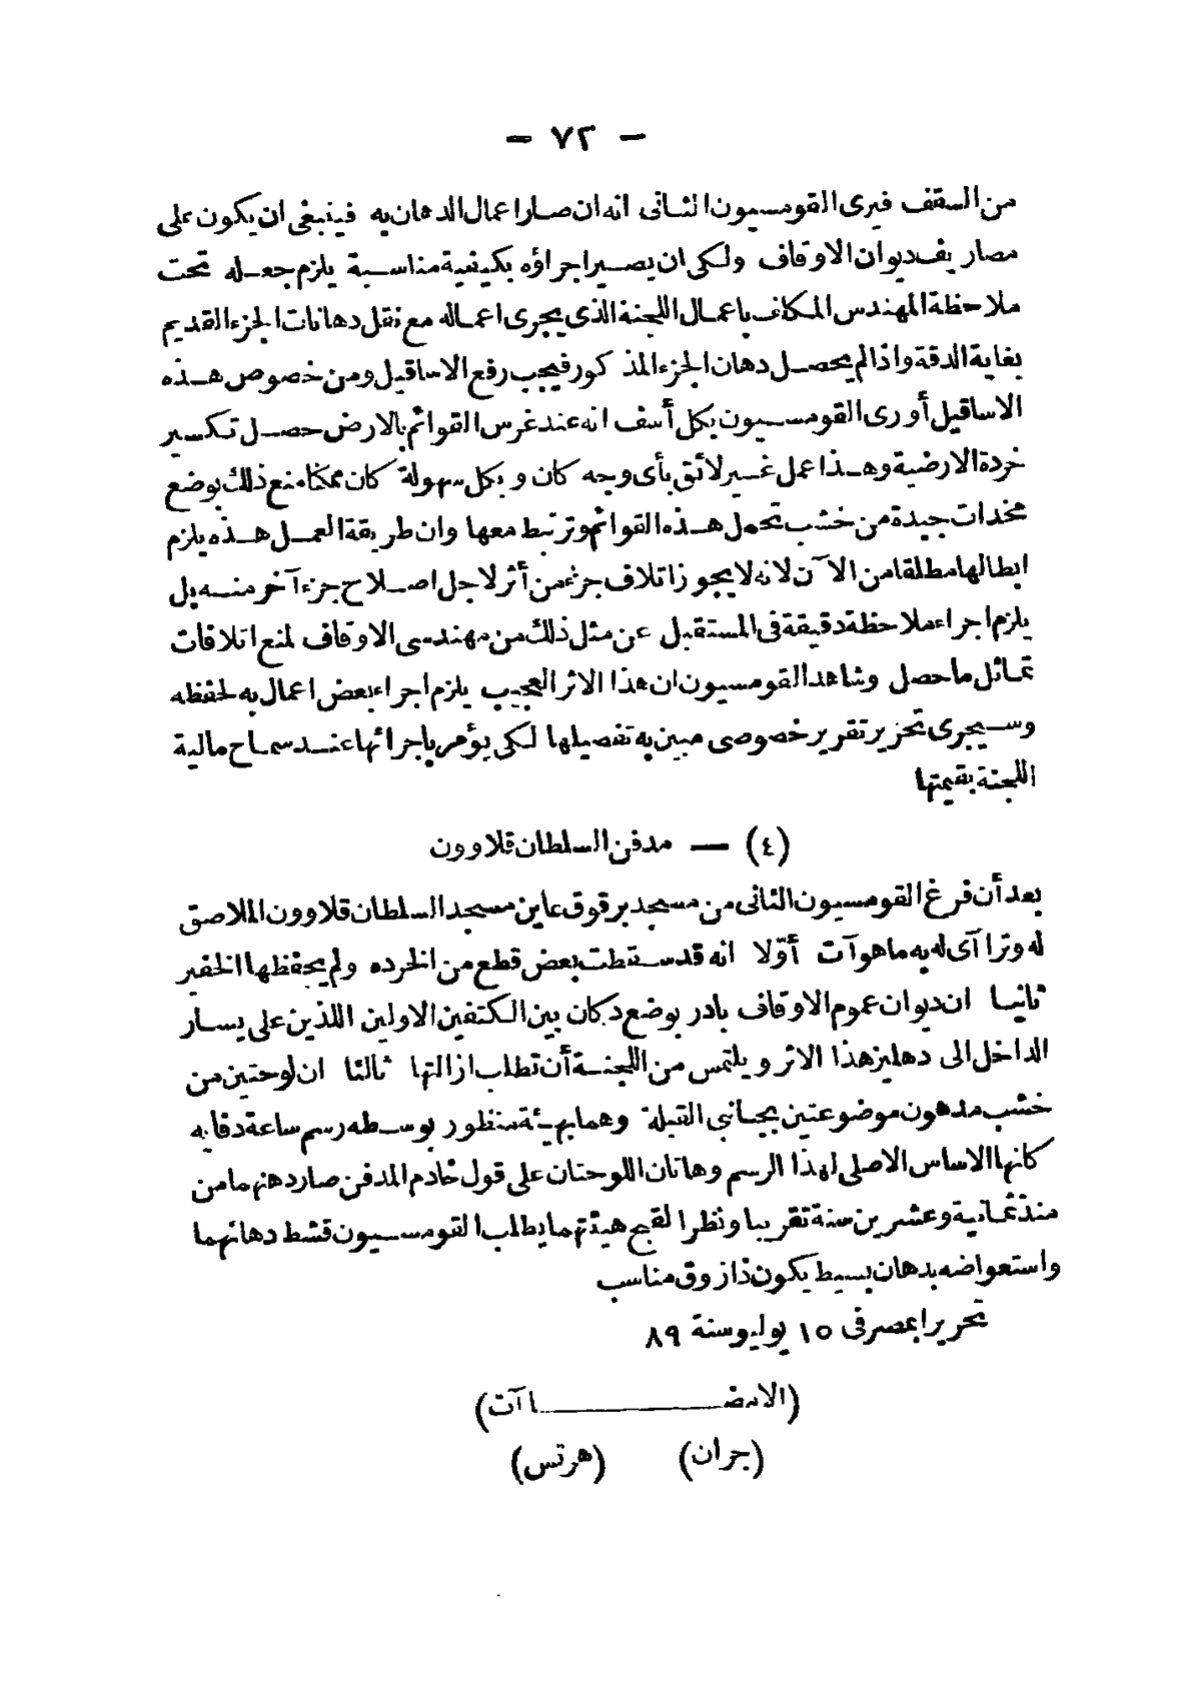 — ٧٢ —
من السقف فيرى القومسيون الثانى انه ان صار اعمال الدهان به فينبغى ان يكون على
مصاريف ديوان الاوقاف ولكى ان يصير اجراؤه بكيفية مناسبة يلزم جعله تحت
ملاحظة المهندس المكلف باعمال اللجنة الذى يجرى اعماله مع نقل دهانات الجزء القديم
بغاية الدقة واذا لم يحصل دهان الجزء المذكور فيجب رفع الاساقيل ومن خصوص هذه
الاساقيل أورى القومسيون بكل أسف انه عند غرس القوائم بالارض حصل تكسير
خردة الارضية وهذا عمل غير لائق بأى وجه كان وبكل سهولة كان ممكنا منع ذلك بوضع
مخدات جيدة من خشب تحمل هذه القوائم وترتبط معها وان طريقة العمل هذه يلزم
ابطالها مطلقا من الآن لانه لا يجوز اتلاف جزء من أثر لاجل اصلاح جزء آخر منه بل
يلزم اجراء ملاحظة دقيقة فى المستقبل عن مثل ذلك من مهندسى الاوقاف لمنع اتلافات
تماثل ما حصل وشاهد القومسيون ان هذا الاثر العجيب يلزم اجراء بعض اعمال به لحفظه
وسيجرى تحرير تقرير خصوصى مبين به تفصيلها لكى يؤمر باجرائها عند سماح مالية
اللجنة بقيمتها
(٤) — مدفن السلطان قلاوون
بعد أن فرغ القومسيون الثانى من مسجد برقوق عاين مسجد السلطان قلاوون الملاصق
له وتراآى له به ما هو آت أوّلا انه قد سقطت بعض قطع من الخرده ولم يحفظها الخفير
ثانيا ان ديوان عموم الاوقاف بادر بوضع دكان بين الكتفين الاولين اللذين على يسار
الداخل الى دهليز هذا الاثر ويلتمس من اللجنة أن تطلب ازالتها ثالثا ان لوحتين من
خشب مدهون موضوعتين بجانبى القبلة وهما بهيئة منظور بوسطه رسم ساعة دقاقه
كانها الاساس الاصلى لهذا الرسم وهاتان اللوحتان على قول خادم المدفن صار دهنهما من
منذ ثمانية وعشرين سنة تقريبا ونظرا لقبح هيئتهما يطلب القومسيون قشط دهانهما
واستعواضه بدهان بسيط يكون ذا زوق مناسب
تحريرا بمصر فى ١٥ يوليو سنة ٨٩
(الامضاآت)
(جران) (هرتس)